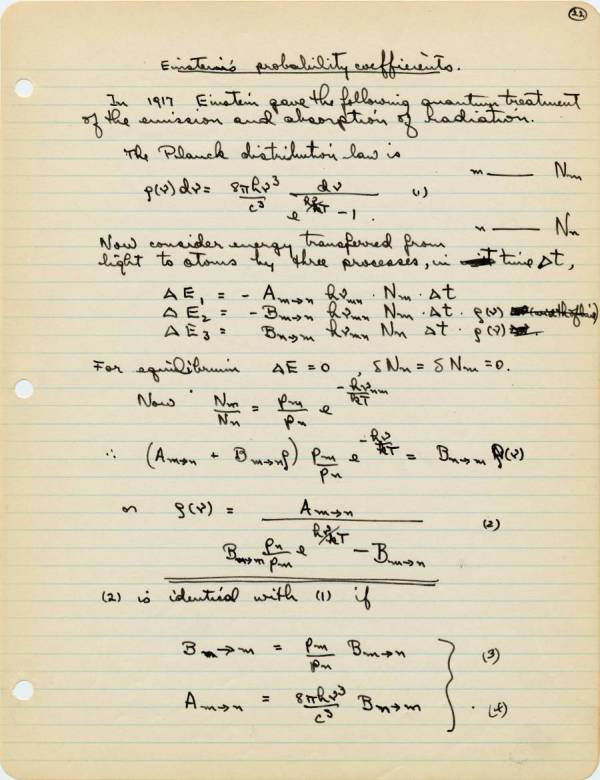 22
Einstein's probability coefficients.
In 1917 Einstein gave the following quantum treatment
of the emission and absorption of radiation.
The Planck distribution law is
m —— Nm
ρ(ν)dν = 8πhν³/c³ dν/(e^(hν/kT) − 1) (1)
n —— Nn
Now consider energy transferred from
light to atoms by three processes, in time Δt,
ΔE₁ = − Am→n hνmn · Nm · Δt
ΔE₂ = − Bm→n hνmn Nm · Δt · ρ(ν)
ΔE₃ = Bn→m hνmn Nn Δt · ρ(ν)
For equilibrium ΔE = 0, δNn = δNm = 0.
Now Nm/Nn = pm/pn e^(−hνnm/kT)
∴ (Am→n + Bm→nρ) pm/pn e^(−hν/kT) = Bn→m ρ(ν)
or ρ(ν) = Am→n / (Bn→m pn/pm e^(hν/kT) − Bm→n) (2)
(2) is identical with (1) if
Bn→m = pm/pn Bm→n (3)
Am→n = 8πhν³/c³ Bn→m (4)